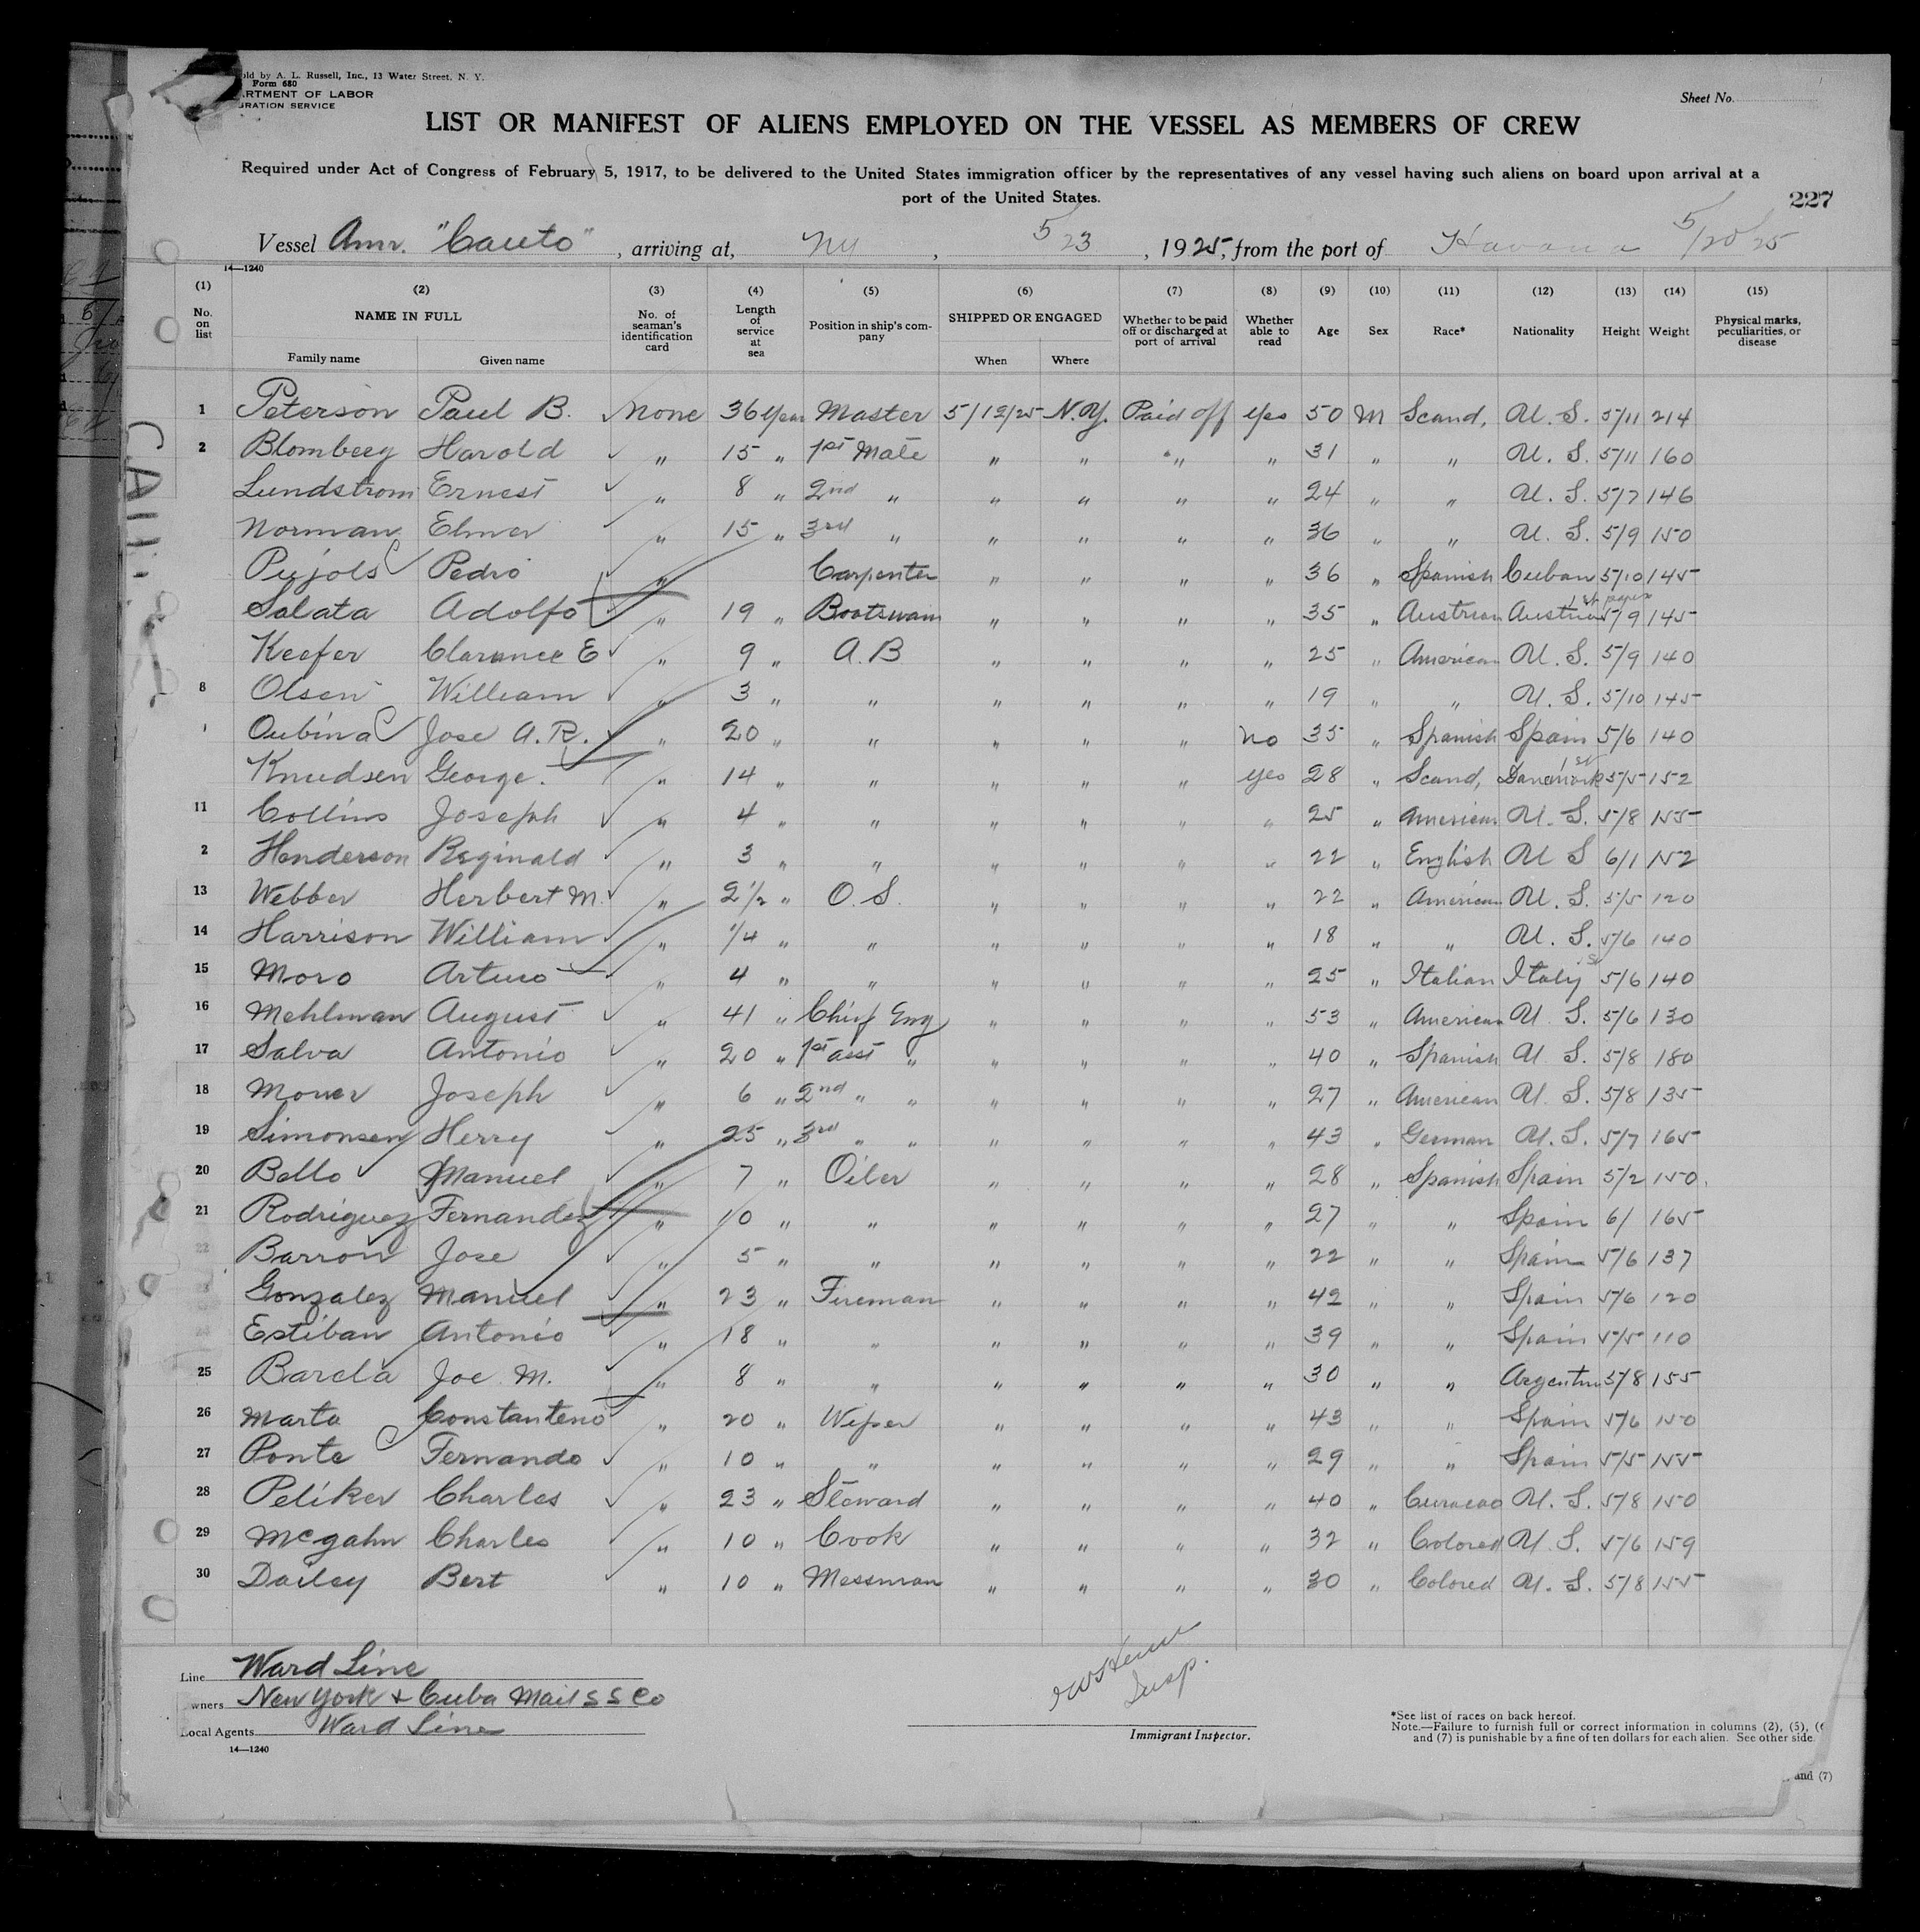 old by A. L. Russell, Inc., 13 Water Street, N. Y.
Form 680
ARTMENT OF LABOR
GRATION SERVICE
Sheet No.
LIST OR MANIFEST OF ALIENS EMPLOYED ON THE VESSEL AS MEMBERS OF CREW
Required under Act of Congress of February 5, 1917, to be delivered to the United States immigration officer by the representatives of any vessel having such aliens on board upon arrival at a
port of the United States.
227
Vessel Amr. "Cauto", arriving at, NY, 5/23, 1925, from the port of Havana 5/20/25
14—1240
(1) (2) (3) (4) (5) (6) (7) (8) (9) (10) (11) (12) (13) (14) (15)
No. on list NAME IN FULL No. of seaman's identification card Length of service at sea Position in ship's company SHIPPED OR ENGAGED Whether to be paid off or discharged at port of arrival Whether able to read Age Sex Race* Nationality Height Weight Physical marks, peculiarities, or disease
Family name Given name When Where
1 Peterson Paul B. None 36 year Master 5/12/25 N.Y. Paid off yes 50 M Scand, U. S. 5/11 214
2 Blomberg Harold " 15 " 1st Mate " " " " 31 " " U. S. 5/11 160
Lundstrom Ernest " 8 " 2nd " " " " " 24 " " U. S. 5/7 146
Norman Elmer " 15 " 3rd " " " " " 36 " " U. S. 5/9 150
Pujols Pedro " Carpenter " " " " 36 " Spanish Cuban 5/10 145
Salata Adolfo " 19 " Boatswain " " " " 35 " Austrian Austrian 1st paper 5/9 145
Keefer Clarence E " 9 " A. B " " " " 25 " American U. S. 5/9 140
8 Olsen William " 3 " " " " " " 19 " " U. S. 5/10 145
Oubina Jose A. R. " 20 " " " " " No 35 " Spanish Spain 5/6 140
Knudsen George. " 14 " " " " " yes 28 " Scand, Danemork 1st 5/5 152
11 Collins Joseph " 4 " " " " " " 25 " American U. S. 5/8 155
2 Henderson Reginald " 3 " " " " " " 22 " English U S 6/1 152
13 Webber Herbert M. " 2 1/2 " O. S. " " " " 22 " American U. S. 5/5 120
14 Harrison William " 1/4 " " " " " " 18 " " U. S. 5/6 140
15 Moro Arturo " 4 " " " " " " 25 " Italian Italy 5/6 140
16 Mehlman August " 41 " Chief Eng " " " " 53 " American U. S. 5/6 130
17 Salva Antonio " 20 " 1st asst " " " " " 40 " Spanish U. S. 5/8 180
18 Moner Joseph " 6 " 2nd " " " " " " 27 " American U. S. 5/8 135
19 Simonsen Herry " 25 " 3rd " " " " " " 43 " German U. S. 5/7 165
20 Bello Manuel " 7 " Oiler " " " " 28 " Spanish Spain 5/2 150
21 Rodriguez Fernandez " 10 " " " " " " 27 " " Spain 6/ 165
22 Barron Jose " 5 " " " " " " 22 " " Spain 5/6 137
Gonzalez Manuel " 23 " Fireman " " " " 42 " " Spain 5/6 120
Estiban Antonio " 18 " " " " " " 39 " " Spain 5/5 110
25 Barcla Joe M. " 8 " " " " " " 30 " " Argentine 5/8 155
26 Marta Constantino " 20 " Wiper " " " " 43 " " Spain 5/6 150
27 Ponte Fernando " 10 " " " " " " 29 " " Spain 5/5 155
28 Peliker Charles " 23 " Steward " " " " 40 " Curacao U. S. 5/8 150
29 McGahn Charles " 10 " Cook " " " " 32 " Colored U. S. 5/6 159
30 Dailey Bert " 10 " Messman " " " " 30 " Colored U. S. 5/8 155
Line Ward Line
wners New York & Cuba Mail S S Co
Local Agents Ward Line
14—1240
Insp.
Immigrant Inspector.
*See list of races on back hereof.
Note.—Failure to furnish full or correct information in columns (2), (5), (6
and (7) is punishable by a fine of ten dollars for each alien. See other side.
and (7)